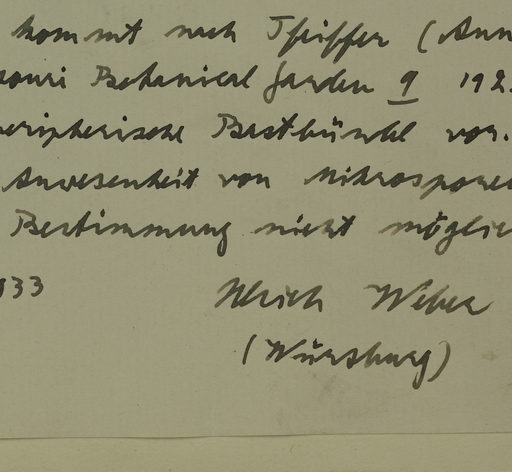 kommt nach Pfeiffer (Ann
souri Botanical Garden 9 192
peripherische Bastbündel vor.
Anwesenheit von Mikrosporen
Bestimmung nicht möglic
933
Ulrich Weber
(Würzburg)